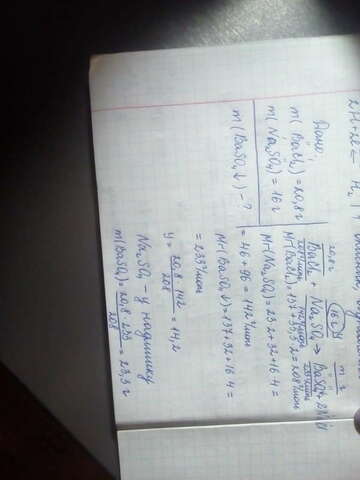 Дано:
m(BaCl₂)=20,8г
m(Na₂SO₄)=16г
m(BaSO₄↓)-?
20,8г 16г m г
BaCl₂ + Na₂SO₄ → BaSO₄↓ + 2NaCl
208г/моль 142г/моль 233г/моль
Mr(BaCl₂)=137+35,5·2=208г/моль
Mr(Na₂SO₄)=23·2+32+16·4=
=46+96=142г/моль
Mr(BaSO₄↓)=137+32+16·4=
=233г/моль
y=20,8·142/208=14,2
Na₂SO₄ - у надлишку
m(BaSO₄)=20,8·233/208=23,3г